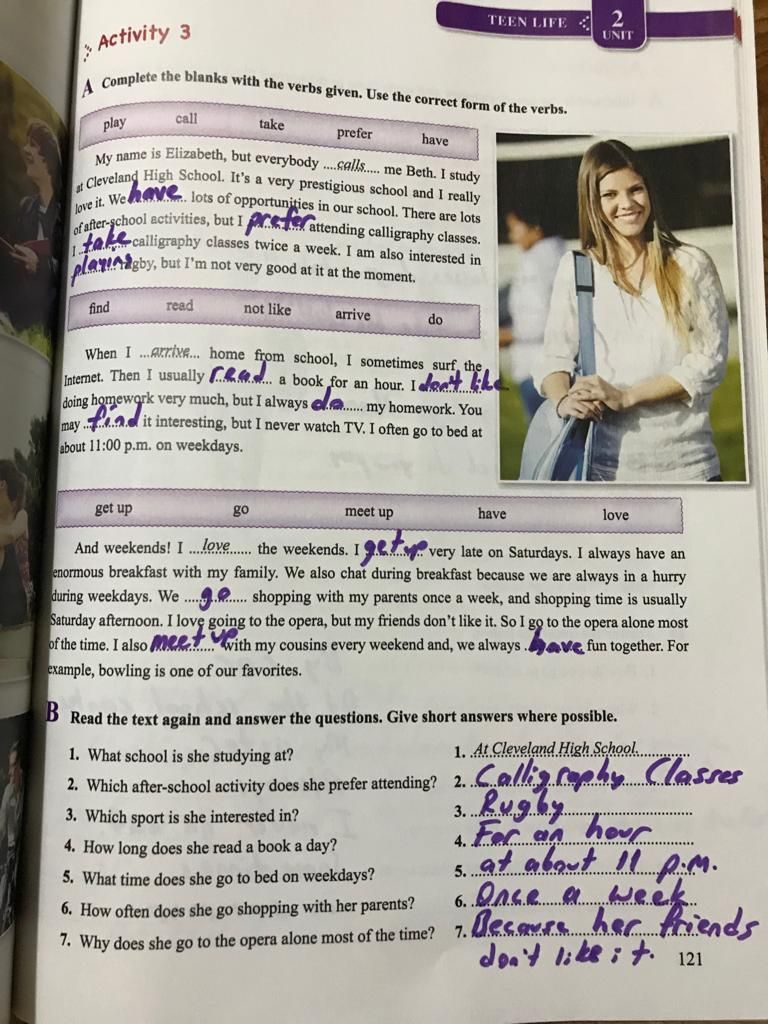 TEEN LIFE 2 UNIT
Activity 3
A Complete the blanks with the verbs given. Use the correct form of the verbs.
play call take prefer have
My name is Elizabeth, but everybody ....calls.... me Beth. I study
at Cleveland High School. It's a very prestigious school and I really
love it. We have lots of opportunities in our school. There are lots
of after-school activities, but I prefer attending calligraphy classes.
I take calligraphy classes twice a week. I am also interested in
playing rugby, but I'm not very good at it at the moment.
find read not like arrive do
When I ...arrive... home from school, I sometimes surf the
Internet. Then I usually read a book for an hour. I don't like
doing homework very much, but I always do...... my homework. You
may ..find it interesting, but I never watch TV. I often go to bed at
about 11:00 p.m. on weekdays.
get up go meet up have love
And weekends! I ...love...... the weekends. I get up very late on Saturdays. I always have an
enormous breakfast with my family. We also chat during breakfast because we are always in a hurry
during weekdays. We .....go..... shopping with my parents once a week, and shopping time is usually
Saturday afternoon. I love going to the opera, but my friends don't like it. So I go to the opera alone most
of the time. I also meet up with my cousins every weekend and, we always .have fun together. For
example, bowling is one of our favorites.
B Read the text again and answer the questions. Give short answers where possible.
1. What school is she studying at? 1. At Cleveland High School.
2. Which after-school activity does she prefer attending? 2. Calligraphy Classes
3. Which sport is she interested in? 3. Rugby
4. How long does she read a book a day? 4. For an hour
5. What time does she go to bed on weekdays? 5. at about 11 p.m.
6. How often does she go shopping with her parents? 6. Once a week
7. Why does she go to the opera alone most of the time? 7. Because her friends
don't like it.
121